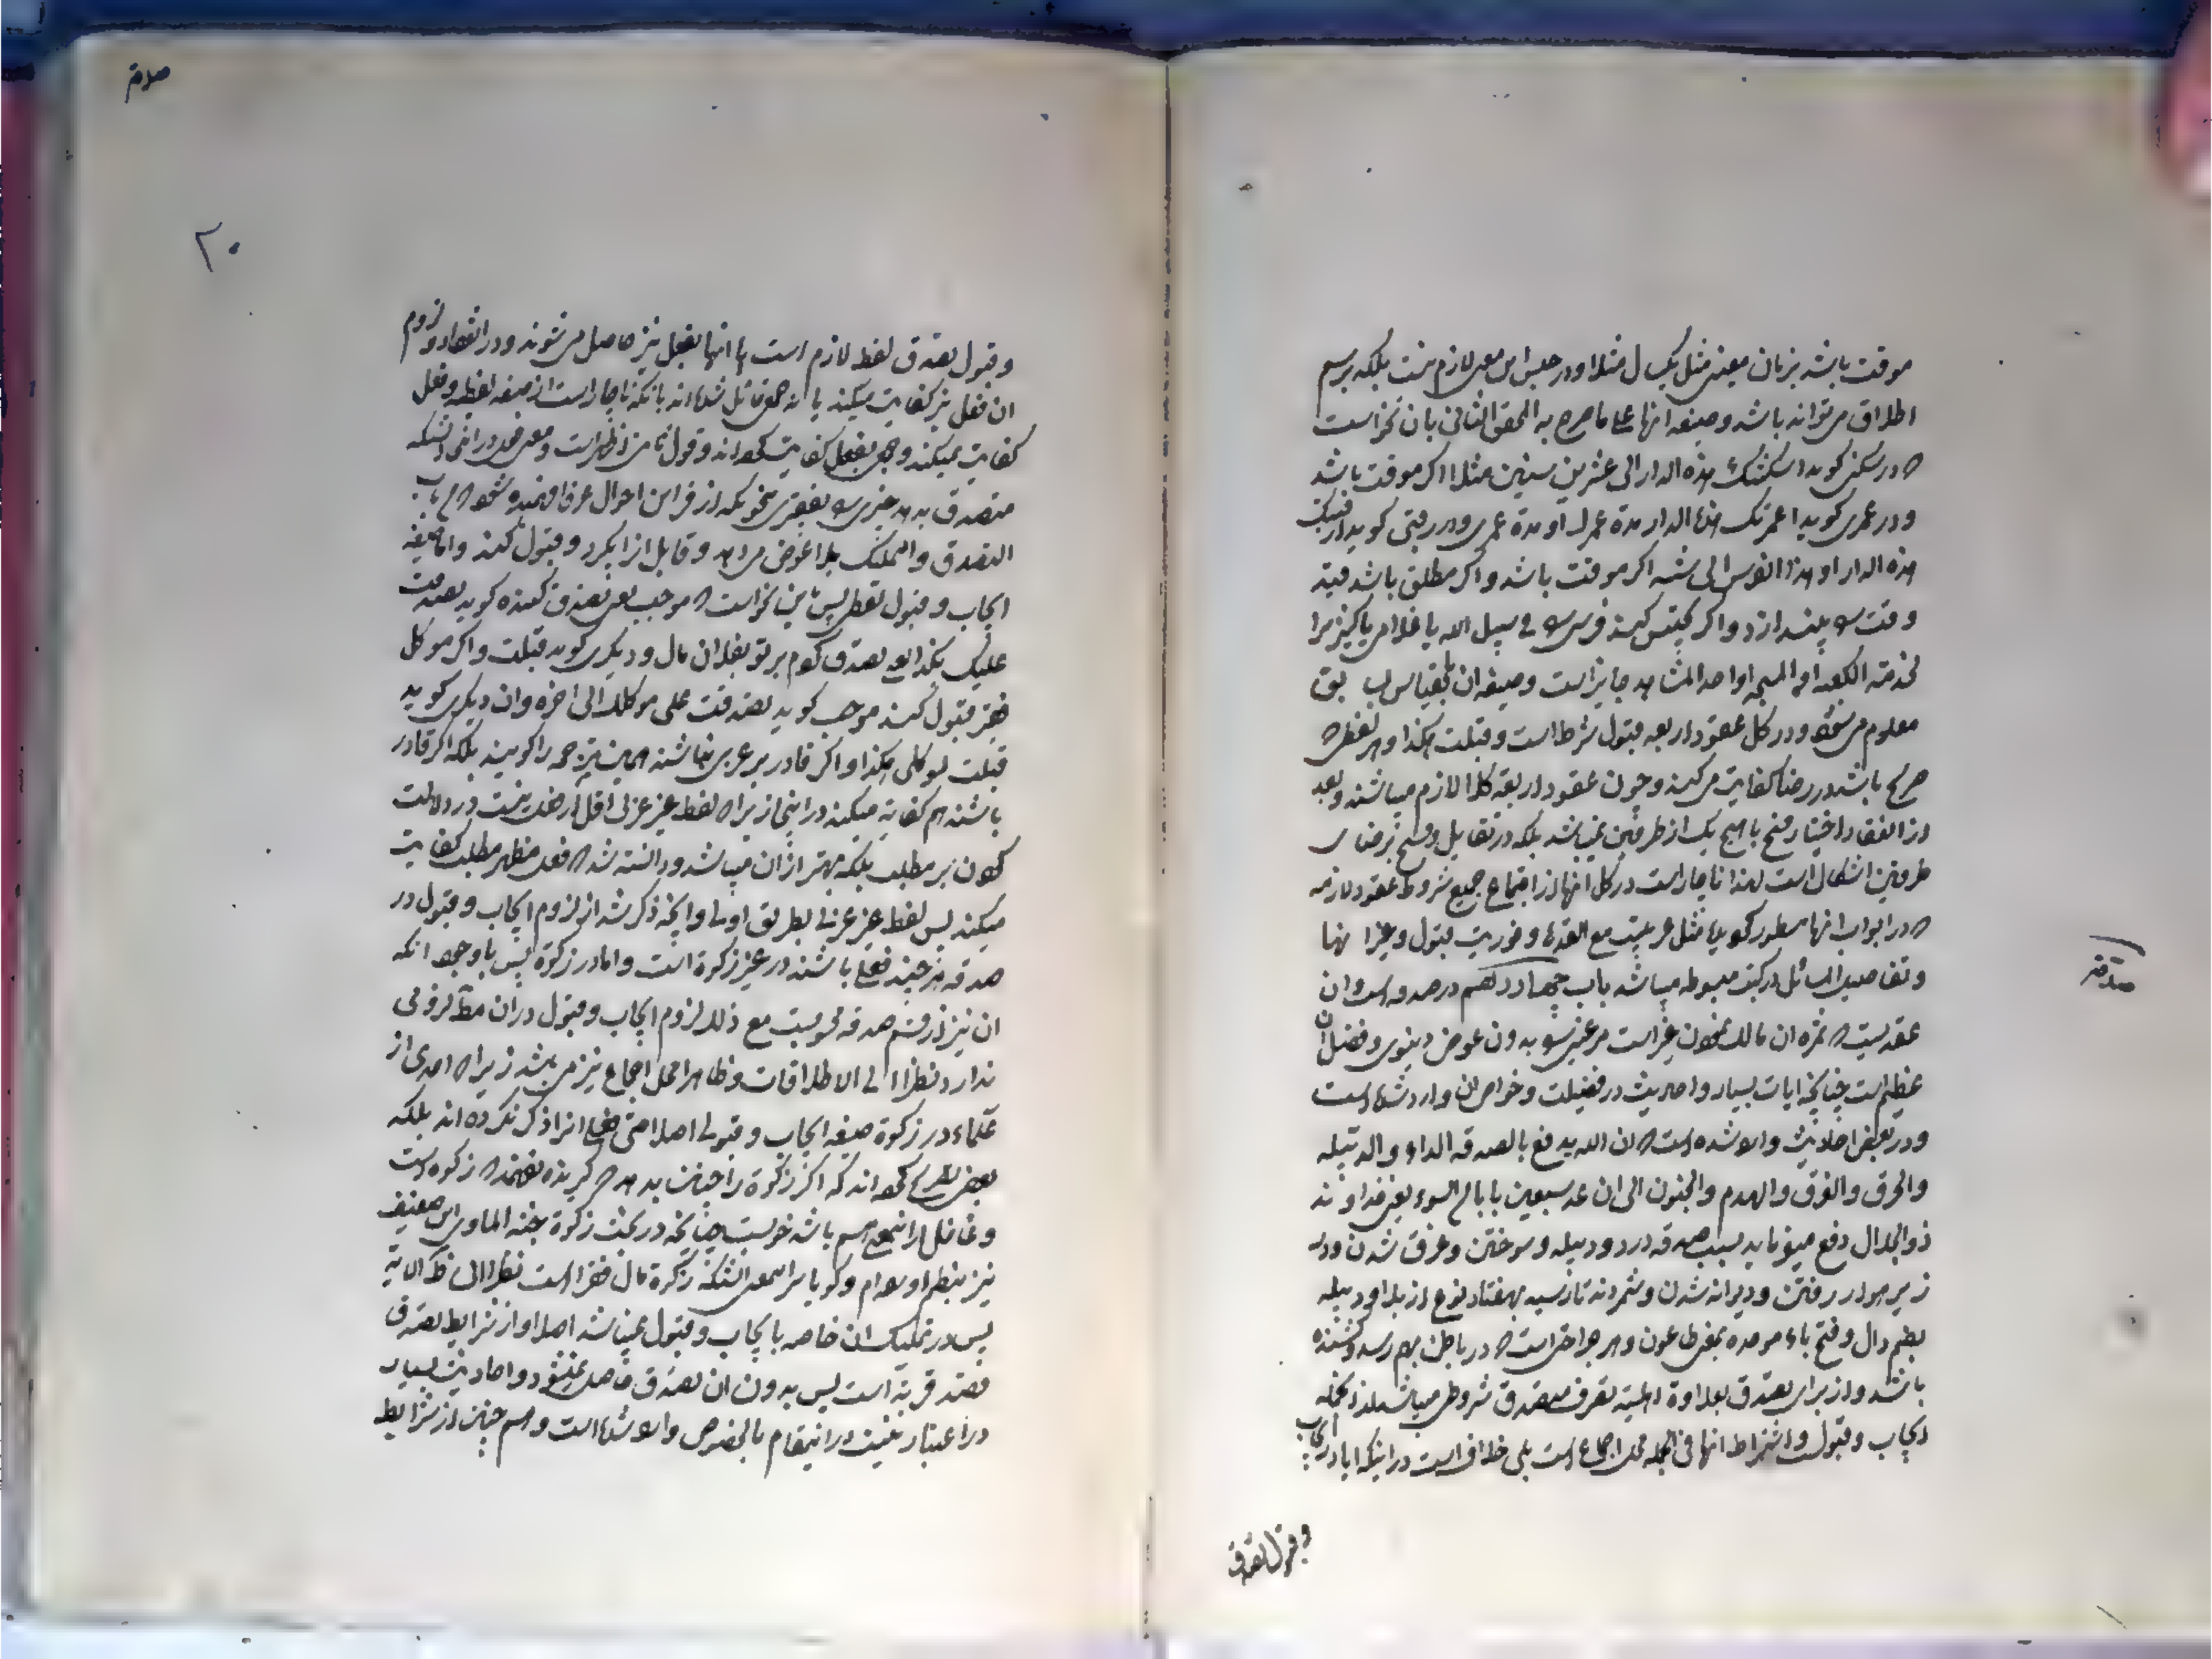 موقت باشد بزمان معین مثل یک سال مثلا و در حبس این معنی لازم نیست بلکه برسم
اطلاق می تواند باشد و صیغه انها علی ما صرح به المحقق الثانی بان نحو است
که در سکنی کوید اسکنتک هذه الدار الی عشرین سنین مثلا اکر موقت باشد
و در عمری کوید اعمرتک هذه الدار مدة عمرک او مدة عمری و در رقبی کوید ارقبتک
هذه الدار او هذا الفرس الی سنه اکر موقت باشد و اکر مطلق باشد قید
وقت را بیندازد و اکر تحبیس کند فرسی را فی سبیل الله یا غلامی یا کنیزی را
لخدمة الکعبه او المسجد او احد المشاهد جایز است و صیغه ان بقیاس سابق
معلوم می شود و در کل عقود اربعه قبول شرط است و قبلت هکذا و هر لفظی که
صریح باشد در رضا کفایت می کند و چون عقود اربعه کلا لازم میباشند و بعد
از انعقاد اختیار فسخ با هیچ یک از طرفین نمیباشد بلکه در تقایل و فسخ برضای
طرفین اشکال است لهذا ناچار است در کل انها از اجتماع جمیع شروط عقود لازمه
که در ابواب انها مسطور مثل عربیت مع القدرة و فوریت قبول و غیر انها
و تفاصیل المسائل در کتب مبسوطه میباشد باب چهاردهم در صدقه است و ان
عقدیست که ثمره ان مالک نمودن غیر است مر غیری را بدون عوض دنیوی و فضل ان
عظیم است چنانچه ایات بسیار و احادیث در فضیلت و خواص ان وارد شده است
و در بعض احادیث وارد شده است که ان الله یدفع بالصدقه الداء و الدبیله
و الحرق و الغرق و الهدم و الجنون الی ان عد سبعین بابا من السوء یعنی خداوند
ذو الجلال دفع میفرماید بسبب صدقه درد و دبیله و سوختن و غرق شدن و در
زیر اوار رفتن و دیوانه شدن و شمردند تا رسید بهفتاد نوع از بلا و دبیله
بضم دال و فتح باء موحده بمعنی طاعون و هر جراحتی است که در باطن بهم رسد و کشنده
باشد و از برای تصدق بعلاوة اهلیة تصرف متصدق شروطی میباشد از انجمله
ایجاب و قبول و اشتراط انها فی الجمله محل اجماع است بلی خلاف است در اینکه ایا در ایجاب
و قبول تصدق
صدقه
صدقه
۲۰
و قبول تصدق لفظ لازم است یا انها بفعل نیز حاصل می شوند و در انعقاد و لزوم
ان فعل نیز کفایت میکند یا نه جمعی قائل شده اند بانکه ناچار است از صیغه لفظیه و فعل
کفایت نمیکند و جمعی بفعل کفایت کرده اند و قول ثانی اظهر است و معنی فعل در اینجا انستکه
متصدق بدهد چیزی را بفقیری بنحویکه از قراین احوال عرفا فهمیده شود که من باب
التصدق و التملیک بلا عوض می دهد و قابل انرا بکیرد و قبول کند و اما صیغه
ایجاب و قبول لفظی پس باین نحو است که موجب یعنی تصدق کننده کوید تصدقت
علیک بکذا یعنی تصدق کردم بر تو بفلان مال و دیکری کوید قبلت و اکر موکل
فقیر قبول کند موجب کوید تصدقت علی موکلک الی اخره و ان دیکری کوید
قبلت لموکلی هکذا و اکر قادر بر عربی نباشند همین ترجمه را کویند بلکه اکر قادر
باشند هم کفایة میکند در اینجا زیرا که لفظ غیر عربی اقل از فعل نیست در دلالت
کردن بر مطلب بلکه بهتر از ان میباشد و دانسته شد که فعل مظهر مطلب کفایت
میکند پس لفظ غیر عربی بطریق اولی و انچه ذکر شد از لزوم ایجاب و قبول در
صدقه هر چند فعلی باشند در غیر زکوة است و اما در زکوة پس با وجود انکه
ان نیز از قسم صدقه محسوبست مع ذلک لزوم ایجاب و قبول در ان مط لزومی
ندارد نظرا الی الاطلاقات و ظاهرا محل اجماع نیز می باشد زیرا که احدی از
علماء در زکوة صیغه ایجاب و قبولی اصلا حتی فعلی انرا ذکر نکرده اند بلکه
بعضی تصریح کرده اند که اکر زکوة را چنان بدهد که کیرنده نفهمد که زکوه است
و غافل از انهم باشد خوبست چنانچه در بحث زکوة جنة الماوی این ضعیف
نیز بنظم اورده ام و کویا سر اینمعنی انستکه زکوة مال فقرا است نظرا الی ظ الایة
پس در تملیک ان خاصه بایجاب و قبول نمیباشد اصلا و از شرایط تصدق
قصد قربة است پس بدون ان تصدق حاصل نمیشود و احادیث بسیار
در اعتبار نیت در اینمقام بالخصوص وارد شده است و هم چنین از شرایط